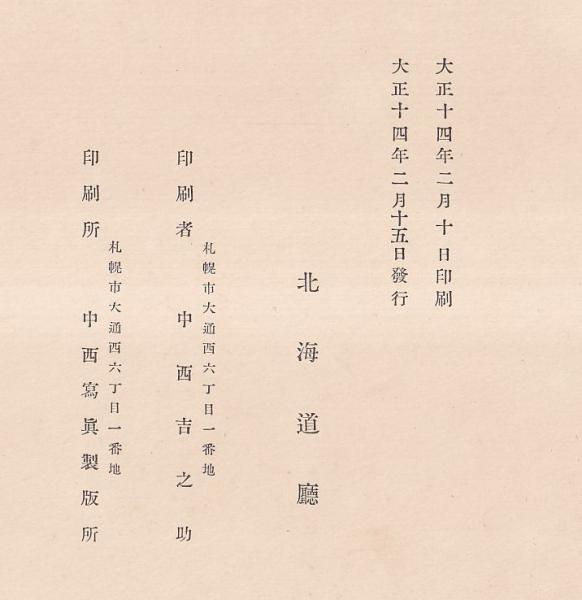 大正十四年二月十日印刷
大正十四年二月十五日發行
北海道廳
札幌市大通西六丁目一番地
印刷者 中西吉之助
札幌市大通西六丁目一番地
印刷所 中西寫眞製版所